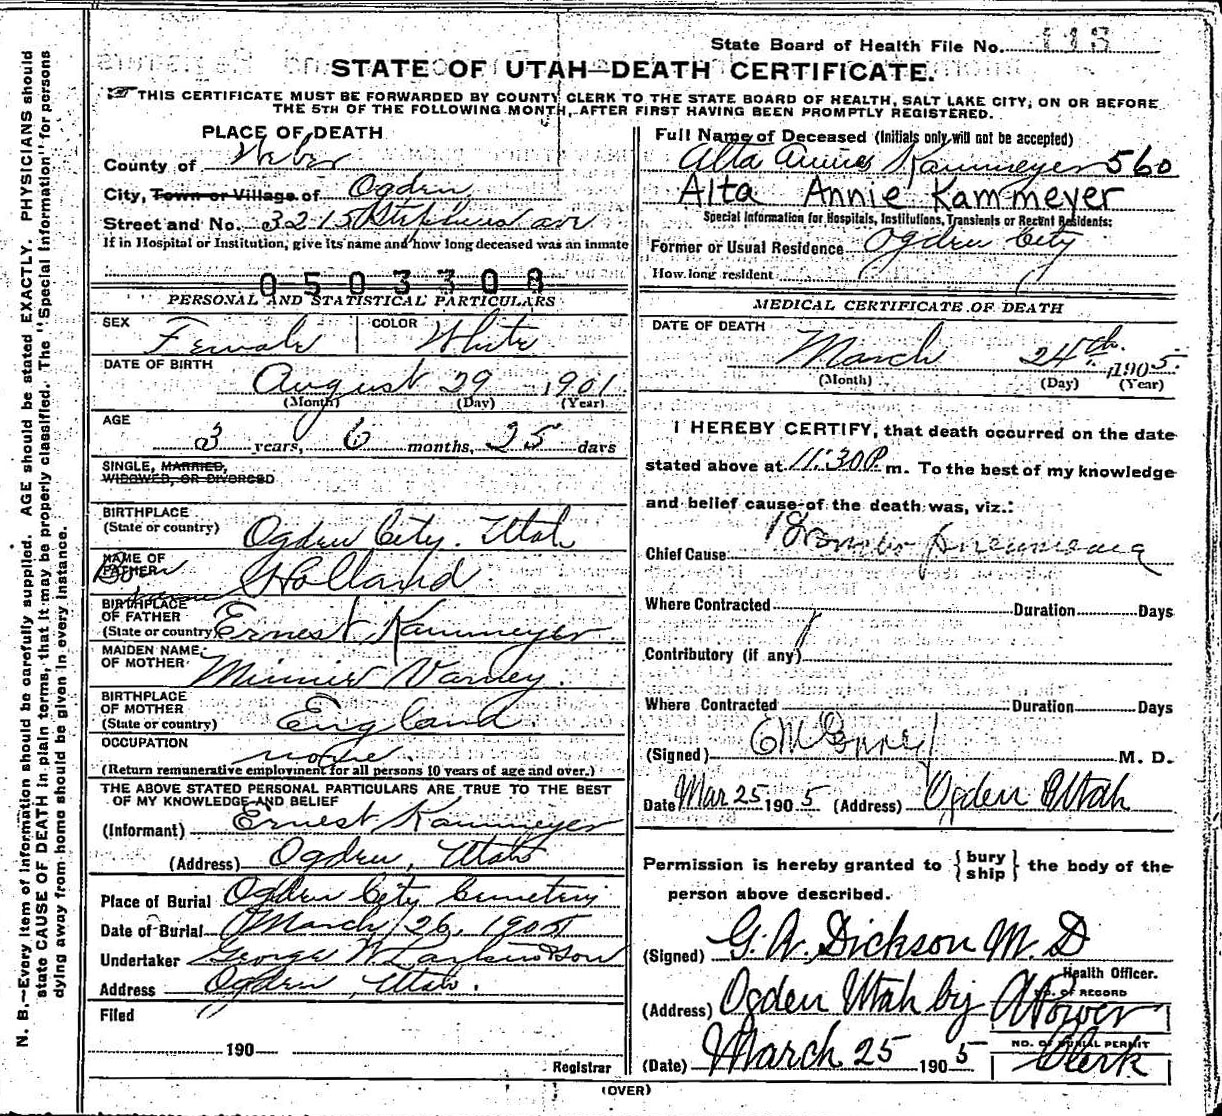 State Board of Health File No. 113
STATE OF UTAH—DEATH CERTIFICATE.
THIS CERTIFICATE MUST BE FORWARDED BY COUNTY CLERK TO THE STATE BOARD OF HEALTH, SALT LAKE CITY, ON OR BEFORE
THE 5TH OF THE FOLLOWING MONTH, AFTER FIRST HAVING BEEN PROMPTLY REGISTERED.
PLACE OF DEATH
County of Weber
City, Town or Village of Ogden
Street and No. 3215 Stephens av
If in Hospital or Institution, give its name and how long deceased was an inmate
0503308
PERSONAL AND STATISTICAL PARTICULARS
SEX Female COLOR White
DATE OF BIRTH August 29 1901
(Month) (Day) (Year)
AGE
3 years, 6 months, 25 days
SINGLE, MARRIED,
WIDOWED, OR DIVORCED
BIRTHPLACE
(State or country) Ogden City. Utah
NAME OF
FATHER Holland
BIRTHPLACE
OF FATHER
(State or country) Ernest Kammeyer
MAIDEN NAME
OF MOTHER Minnie Varney.
BIRTHPLACE
OF MOTHER
(State or country) England
OCCUPATION none.
(Return remunerative employment for all persons 10 years of age and over.)
THE ABOVE STATED PERSONAL PARTICULARS ARE TRUE TO THE BEST
OF MY KNOWLEDGE AND BELIEF
(Informant) Ernest Kammeyer
(Address) Ogden, Utah
Place of Burial Ogden City Cemetery
Date of Burial March 26, 1905
Undertaker George W Larkin & Son
Address Ogden, Utah.
Filed
190
Registrar
Full Name of Deceased (Initials only will not be accepted)
Alta Annie Kammeyer 560
Alta Annie Kammeyer
Special Information for Hospitals, Institutions, Transients or Recent Residents:
Former or Usual Residence Ogden City
How long resident
MEDICAL CERTIFICATE OF DEATH
DATE OF DEATH
March 24th. 1905.
(Month) (Day) (Year)
I HEREBY CERTIFY, that death occurred on the date
stated above at 11:30 P. m. To the best of my knowledge
and belief cause of the death was, viz.:
Chief Cause Broncho pneumonia
Where Contracted Duration Days
Contributory (if any)
Where Contracted Duration Days
(Signed) M. D.
Date Mar 25 1905 (Address) Ogden Utah
Permission is hereby granted to {bury
ship} the body of the
person above described.
(Signed) G. W. Dickson M. D
Health Officer.
(Address) Ogden Utah by A Power
NO. OF RECORD
NO. OF BURIAL PERMIT
(Date) March 25 1905 Clerk
(OVER)
N. B.—Every item of information should be carefully supplied. AGE should be stated EXACTLY. PHYSICIANS should
state CAUSE OF DEATH in plain terms, that it may be properly classified. The "Special Information" for persons
dying away from home should be given in every instance.